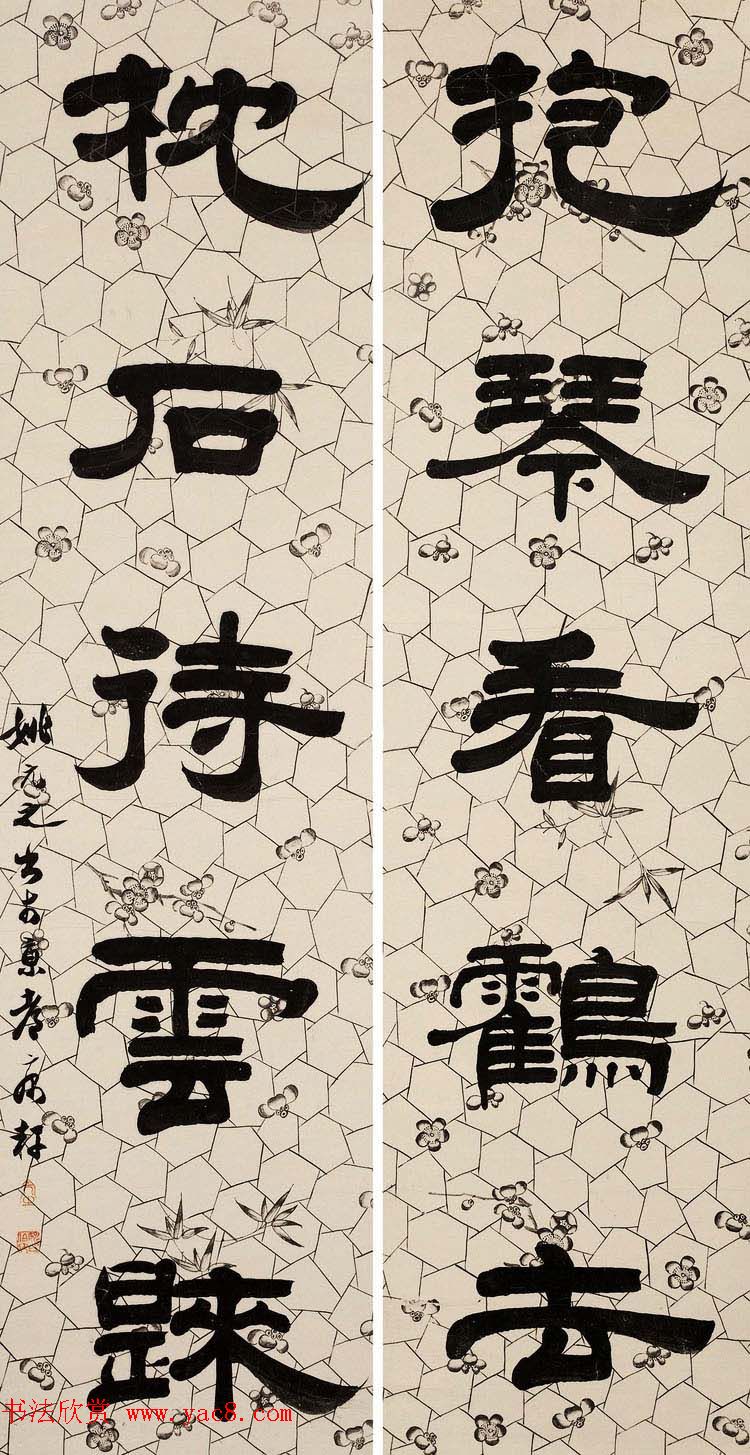 抱琴看鶴去
枕石待雲歸
姚元之書於
书法欣赏 www.yac8.com